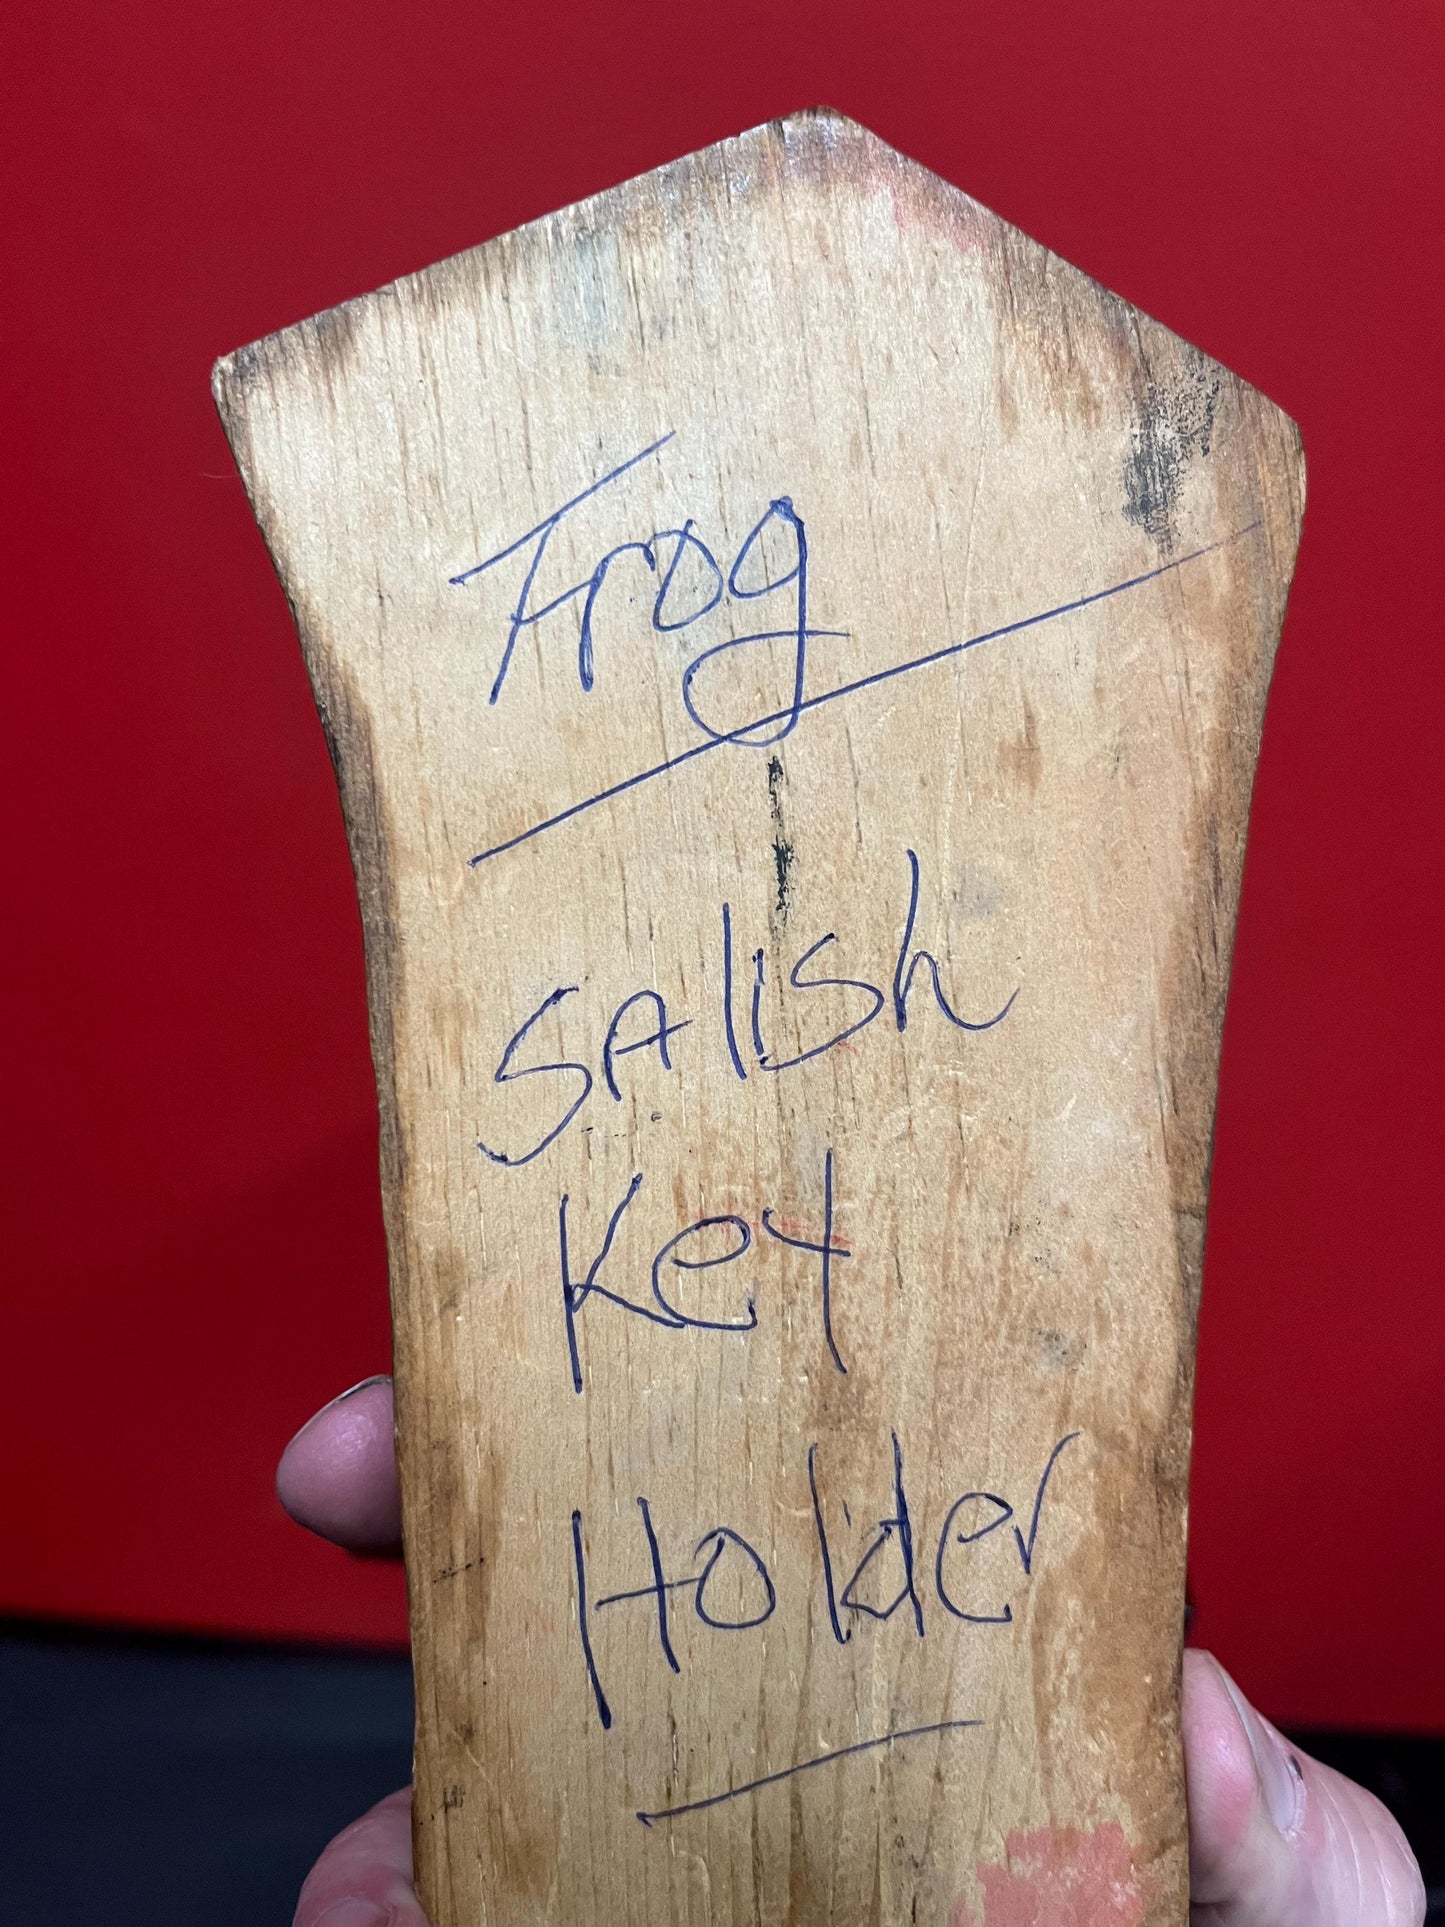 Frog
SAlish
Key
Holder